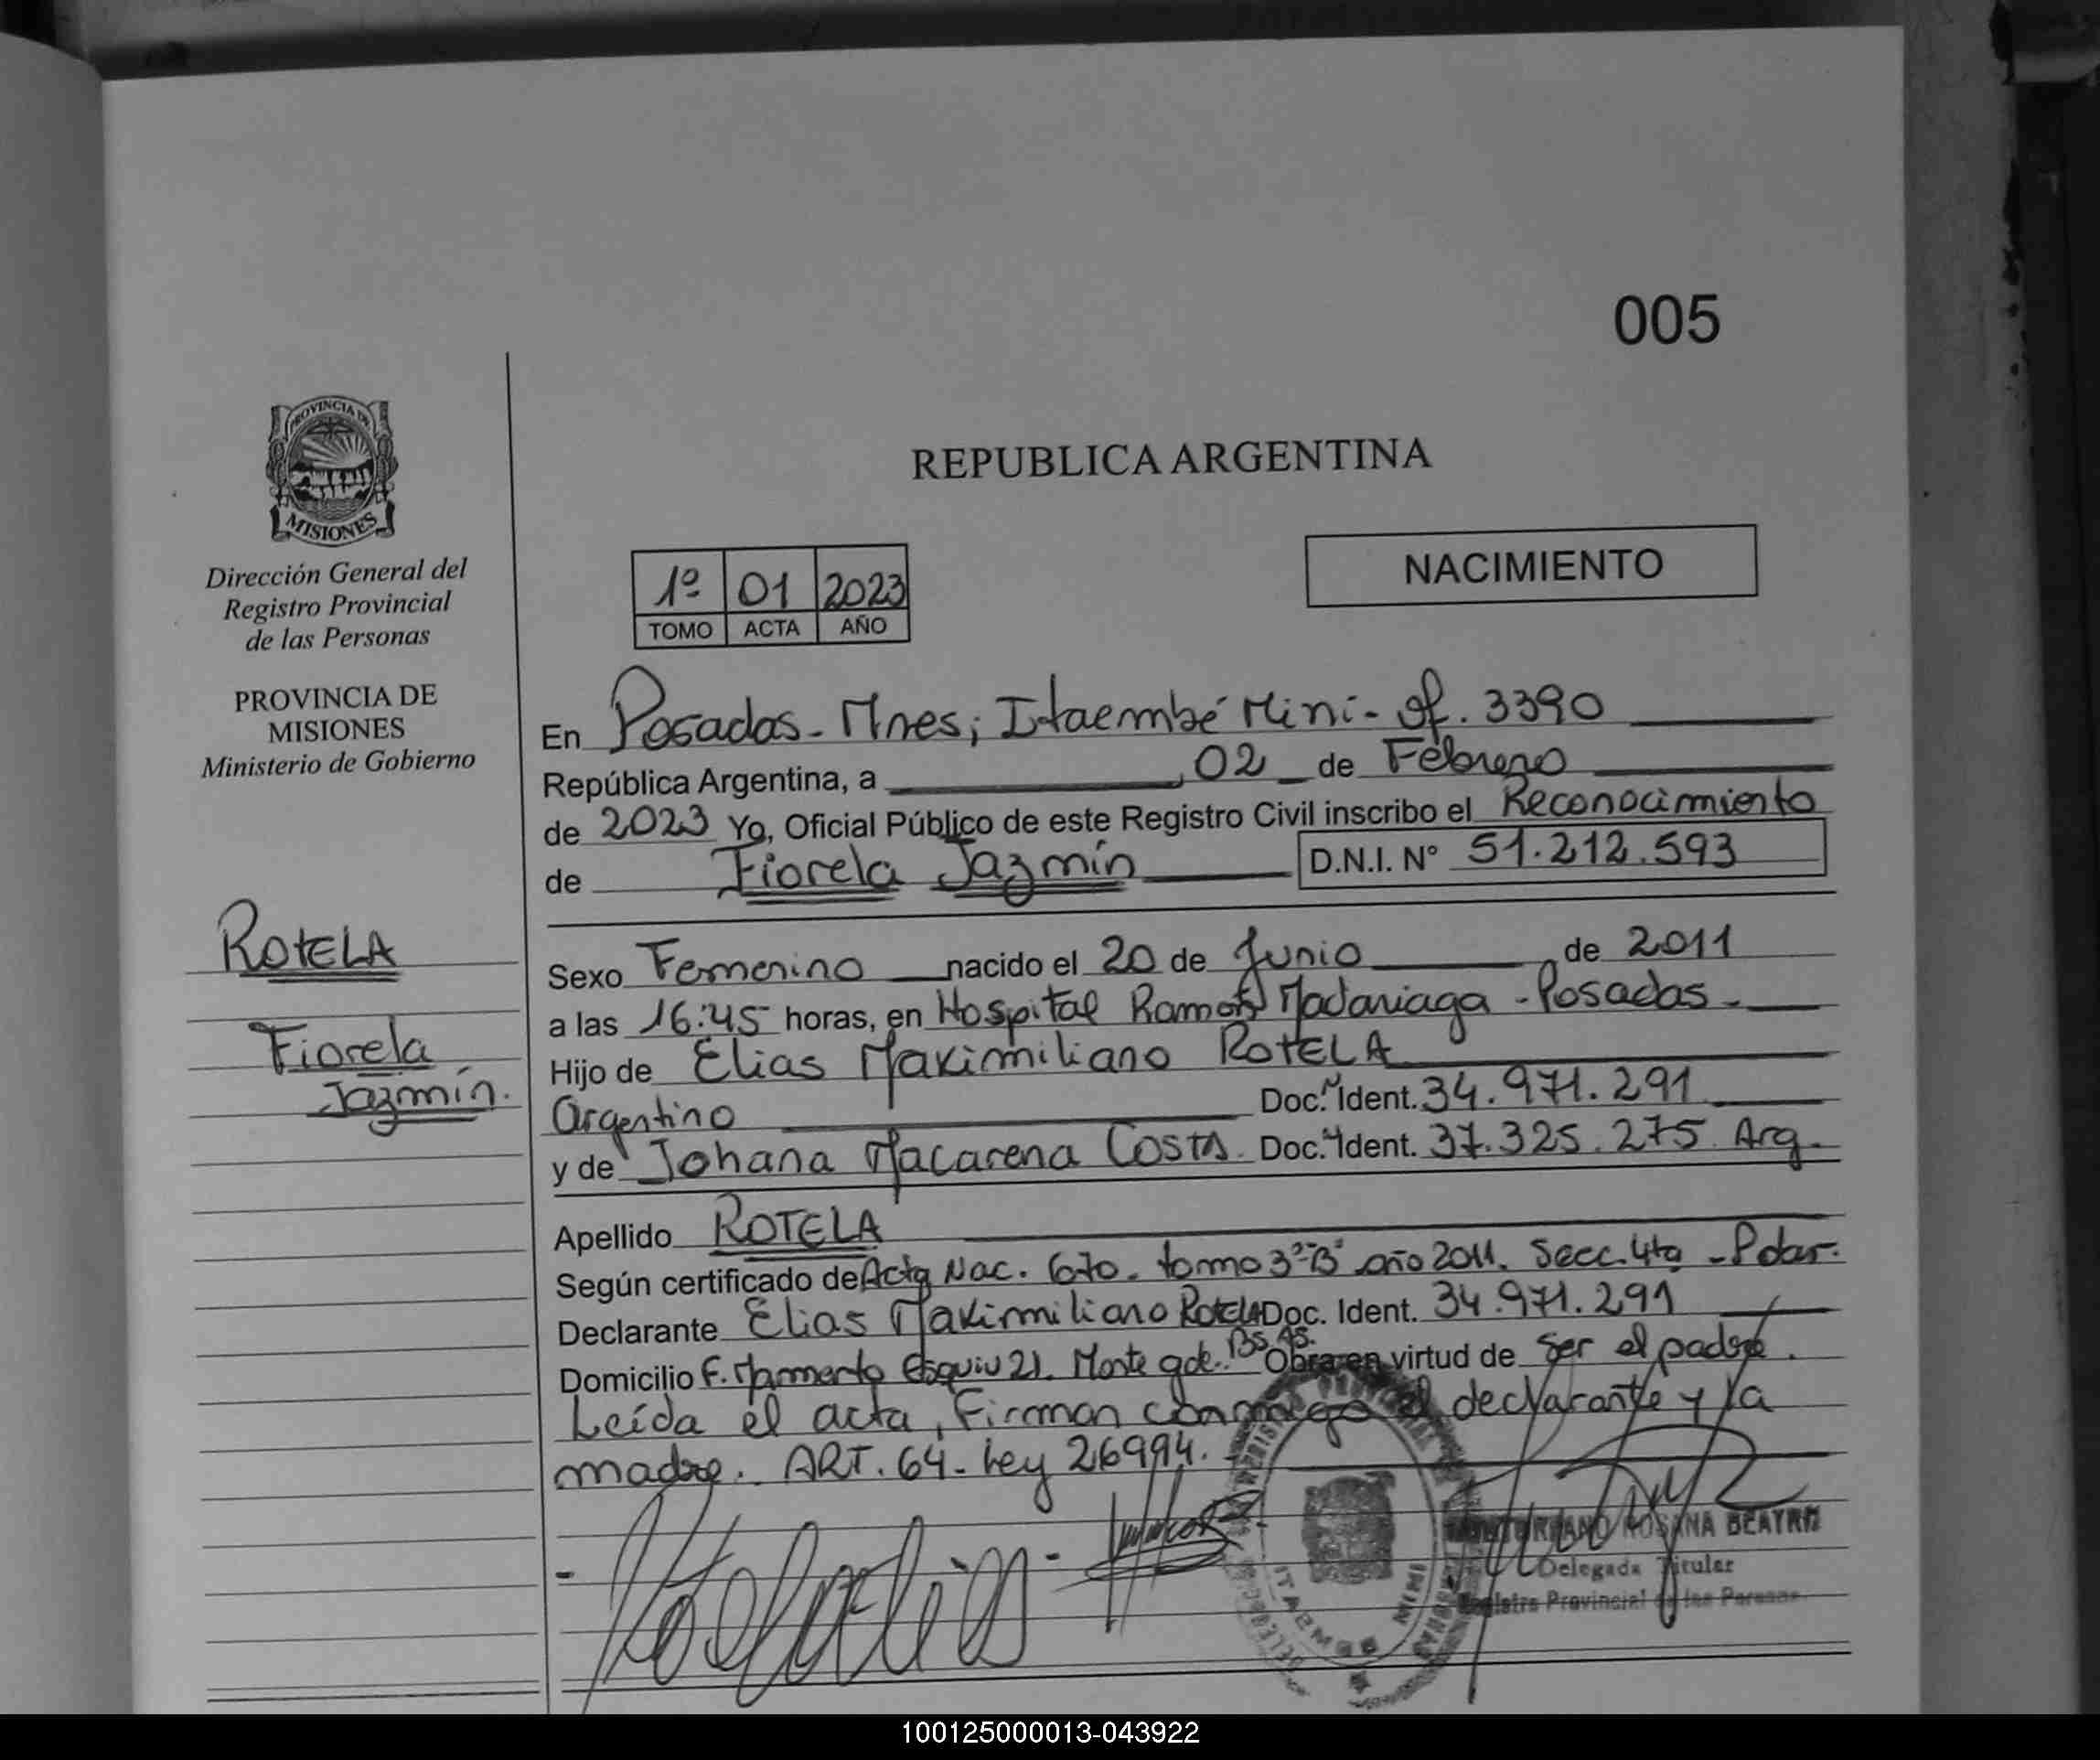 005
PROVINCIA DE
MISIONES
REPUBLICA ARGENTINA
NACIMIENTO
Dirección General del
Registro Provincial
de las Personas
PROVINCIA DE
MISIONES
Ministerio de Gobierno
1º 01 2023
TOMO ACTA AÑO
En Posadas - Mnes; Itaembé Mini - of. 3390
República Argentina, a 02 de Febrero
de 2023 Yo, Oficial Público de este Registro Civil inscribo el Reconocimiento
de Fiorela Jazmín D.N.I. Nº 51.212.593
ROTELA
Fiorela
Jazmín.
Sexo Femenino nacido el 20 de Junio de 2011
a las 16:45 horas, en Hospital Ramón Madariaga - Posadas -
Hijo de Elias Maximiliano ROTELA
Argentino Doc. Ident. 34.971.291
y de Johana Macarena Costa. Doc. Ident. 37.325.275 Arg.
Apellido ROTELA
Según certificado de Acta Nac. 670. tomo 3º "B" año 2011. Secc. 4ta - Pdas.
Declarante Elias Maximiliano Rotela Doc. Ident. 34.971.291
Domicilio F. Mamerto Esquiu 21. Monte gde. Bs. As. Obra en virtud de Ser el padre.
Leída el acta, Firman conmigo el declarante y la
madre. ART. 64 - Ley 26994.
ROSANA
Delegada Titular
Registro Provincial de las Personas
ITAEMBE MINI
100125000013-043922